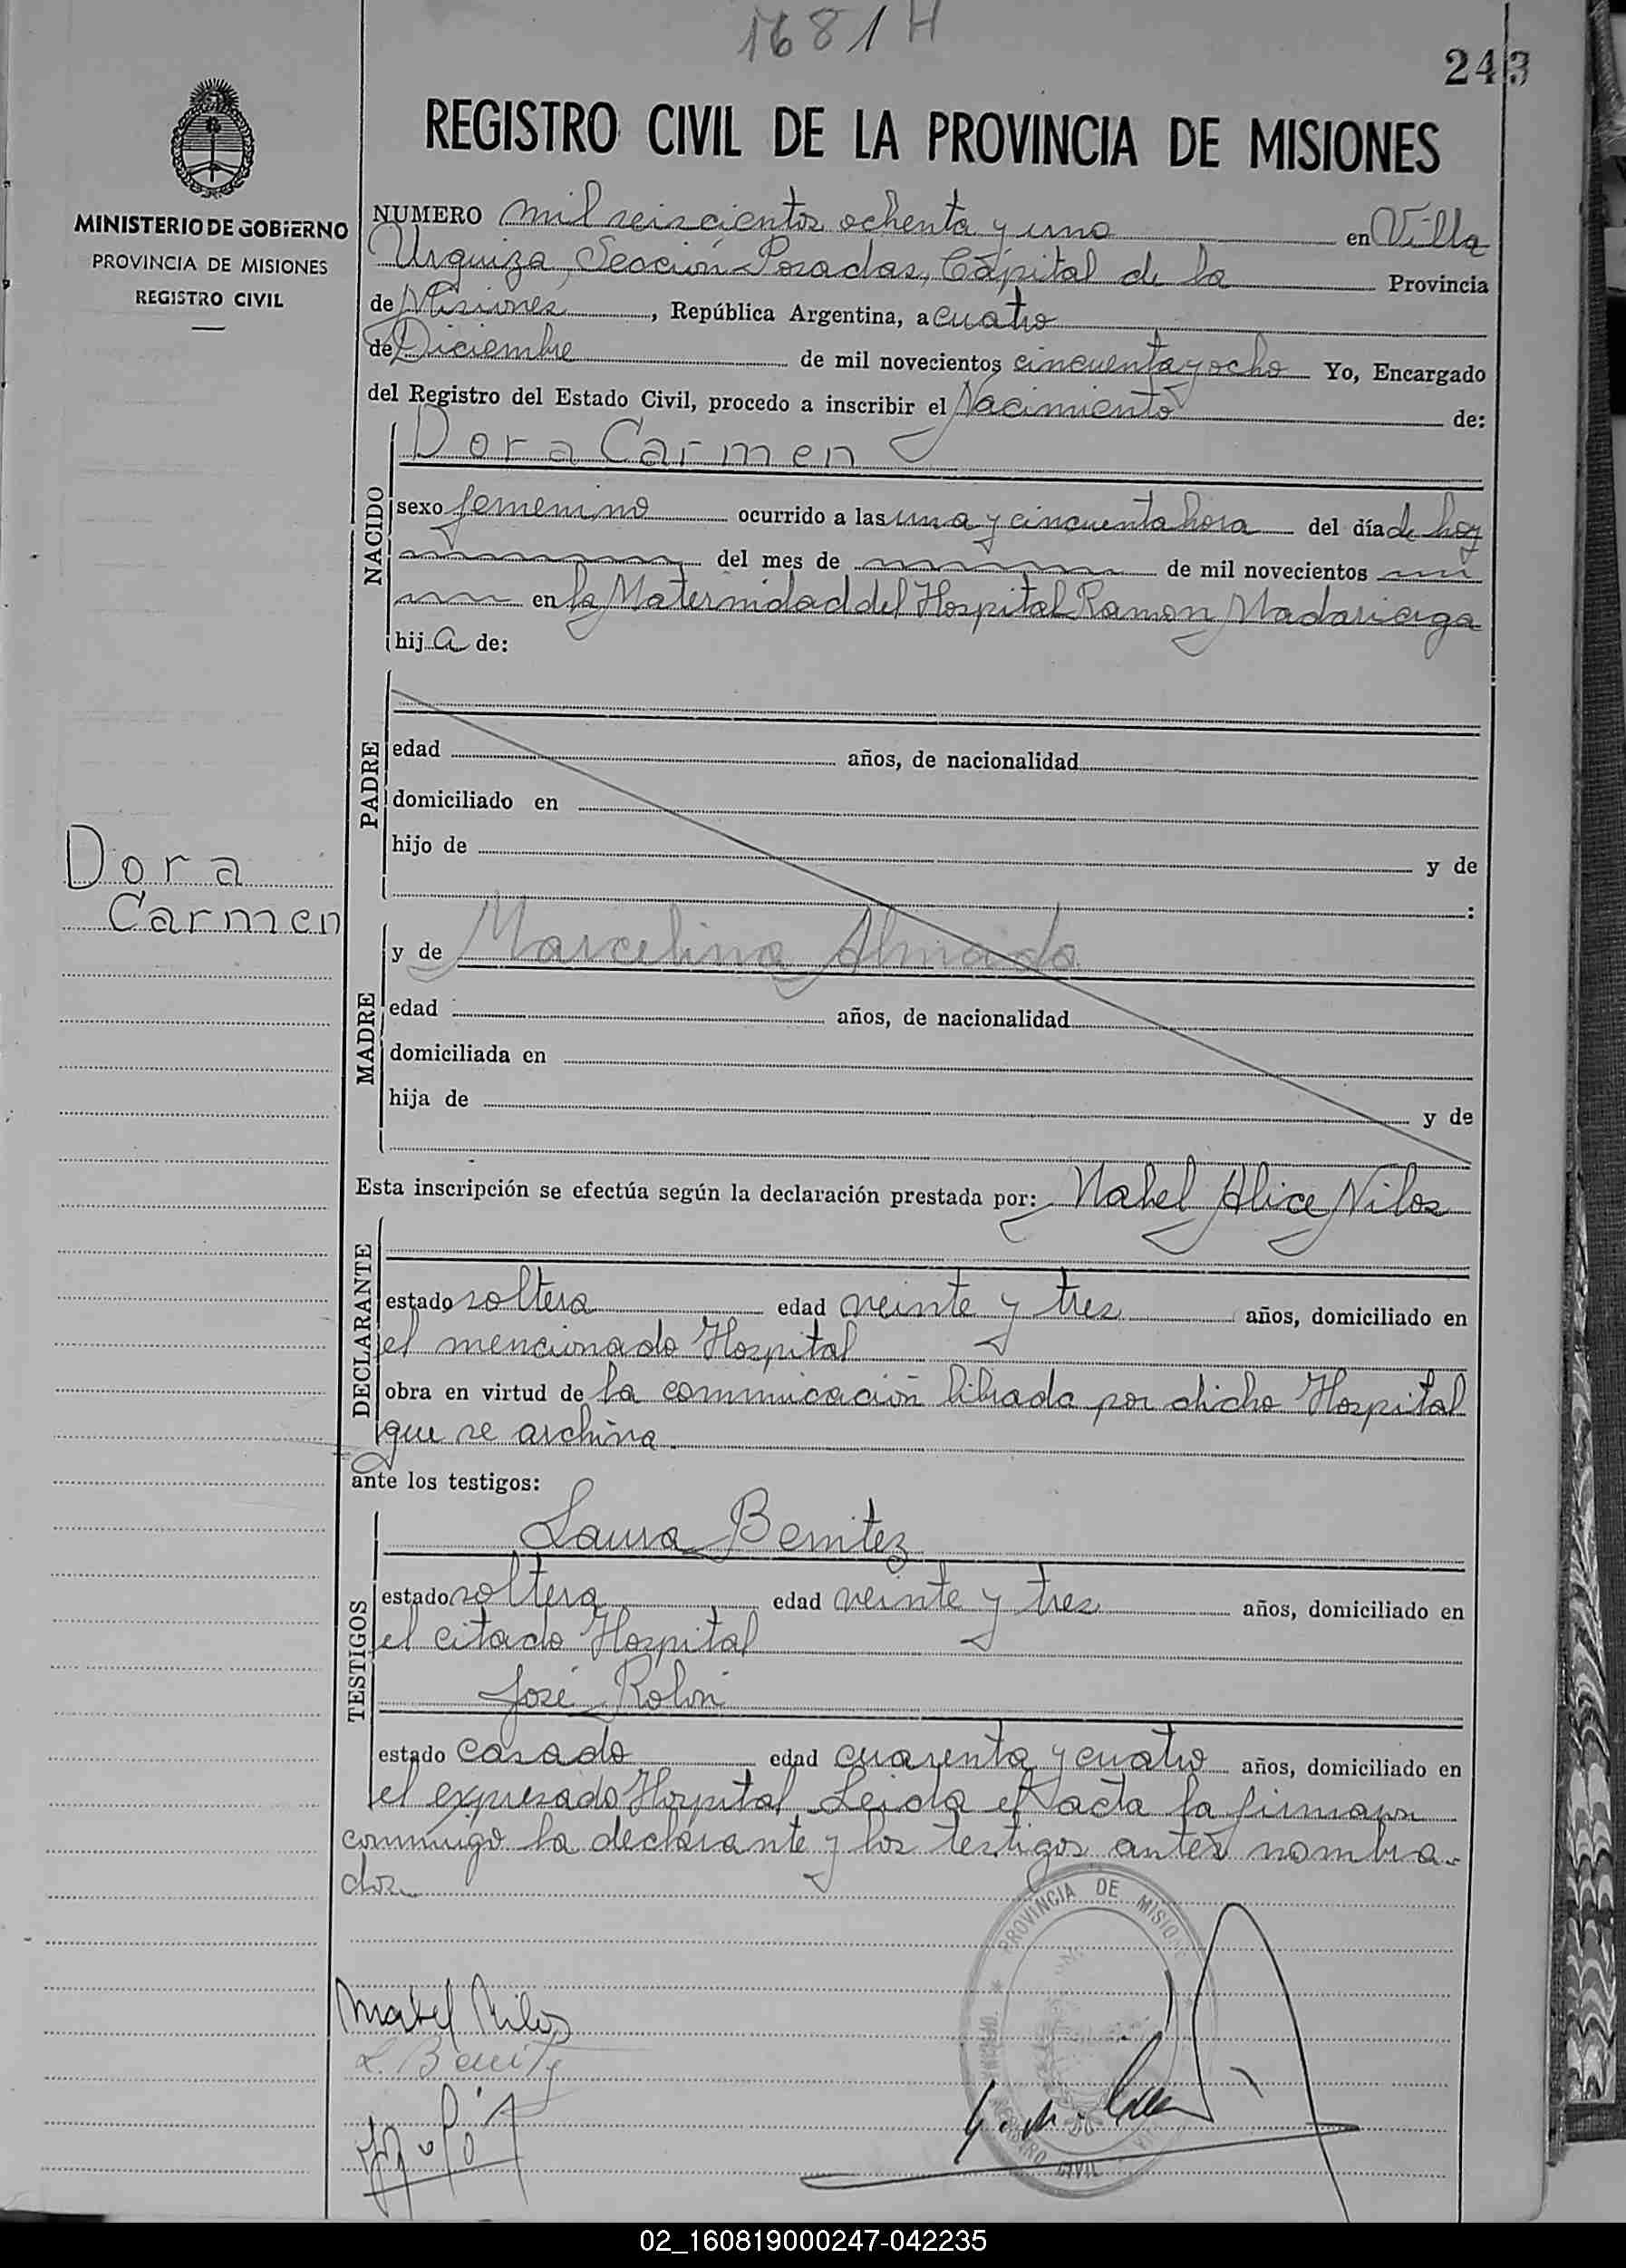 1681 H
243
REGISTRO CIVIL DE LA PROVINCIA DE MISIONES
MINISTERIO DE GOBIERNO
PROVINCIA DE MISIONES
REGISTRO CIVIL
NUMERO mil seiscientos ochenta y uno en Villa
Urquiza, Sección Posadas, Cápital de la Provincia
de Misiones, República Argentina, a cuatro
de Diciembre de mil novecientos cincuenta y ocho Yo, Encargado
del Registro del Estado Civil, procedo a inscribir el Nacimiento de:
NACIDO
Dora Carmen
sexo femenino ocurrido a las una y cincuenta hora del día de hoy
del mes de de mil novecientos
en la Maternidad del Hospital Ramon Madariaga
hija de:
PADRE
edad años, de nacionalidad
domiciliado en
hijo de y de
:
Dora
Carmen
MADRE
y de Marcelina Almada
edad años, de nacionalidad
domiciliada en
hija de y de
Esta inscripción se efectúa según la declaración prestada por: Mabel Alice Nilos
DECLARANTE
estado soltera edad veinte y tres años, domiciliado en
el mencionado Hospital
obra en virtud de la comunicación librada por dicho Hospital
que se archiva.
ante los testigos:
TESTIGOS
Laura Benitez
estado soltera edad veinte y tres años, domiciliado en
el citado Hospital
José Rolón
estado casado edad cuarenta y cuatro años, domiciliado en
el expresado Hospital Leida el acta la firmaron
conmigo la declarante y los testigos antes nombra-
dos.
PROVINCIA DE MISIONES
REGISTRO CIVIL
Mabel Nilos
L. Benitez
02_160819000247-042235